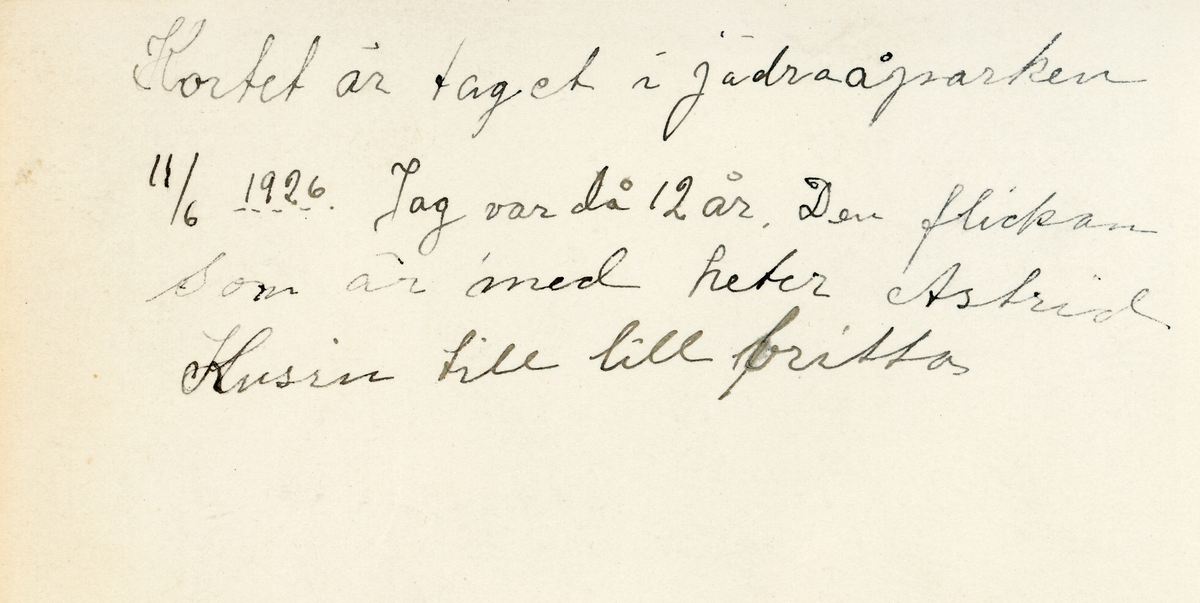 Kortet är taget i jädraåparken
11/6 1926. Jag var då 12 år. Den flickan
som är med heter Astrid
Kusin till lill britta